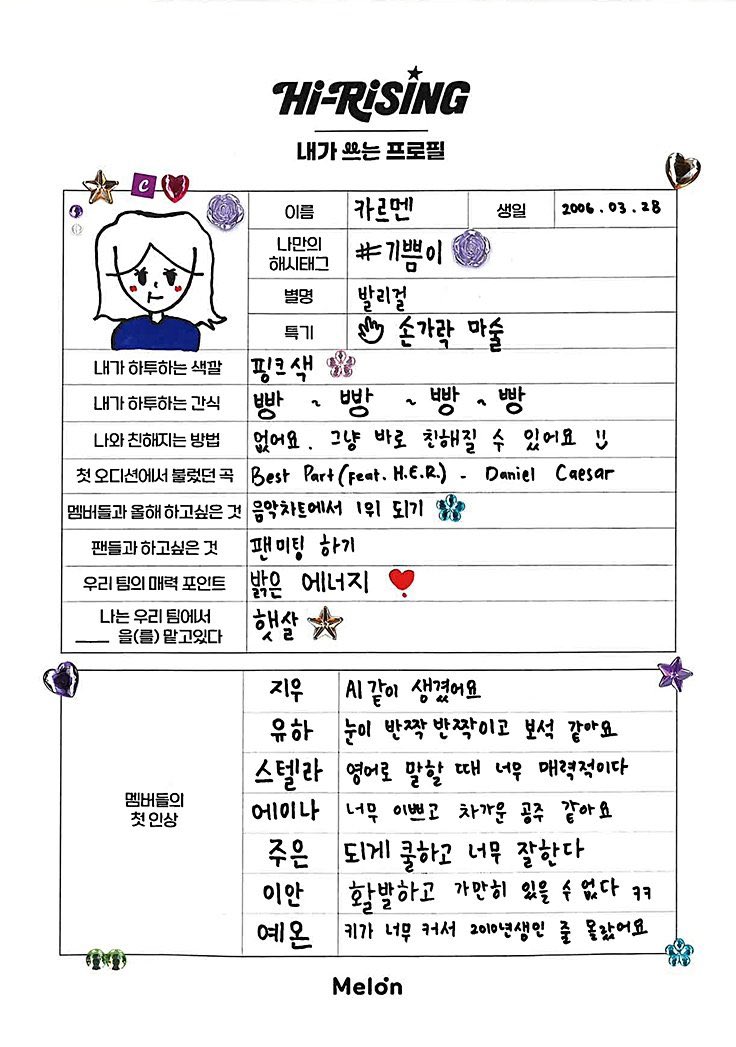 Hi-RiSiNG
내가 쓰는 프로필
C
이름 카르멘 생일 2006.03.28
나만의
해시태그 #기쁨이
별명 발리걸
특기 손가락 마술
내가 하투하는 색깔 핑크색
내가 하투하는 간식 빵 ~ 빵 ~ 빵 ~ 빵
나와 친해지는 방법 없어요. 그냥 바로 친해질 수 있어요
첫 오디션에서 불렀던 곡 Best Part (feat. H.E.R.) - Daniel Caesar
멤버들과 올해 하고싶은 것 음악차트에서 1위 되기
팬들과 하고싶은 것 팬미팅 하기
우리 팀의 매력 포인트 밝은 에너지
나는 우리 팀에서
____ 을(를) 맡고있다 햇살
멤버들의
첫 인상
지우 AI 같이 생겼어요
유하 눈이 반짝반짝이고 보석 같아요
스텔라 영어로 말할 때 너무 매력적이다
에이나 너무 이쁘고 차가운 공주 같아요
주은 되게 쿨하고 너무 잘한다
이안 활발하고 가만히 있을 수 없다 ㅋㅋ
예온 키가 너무 커서 2010년생인 줄 몰랐어요
Melon